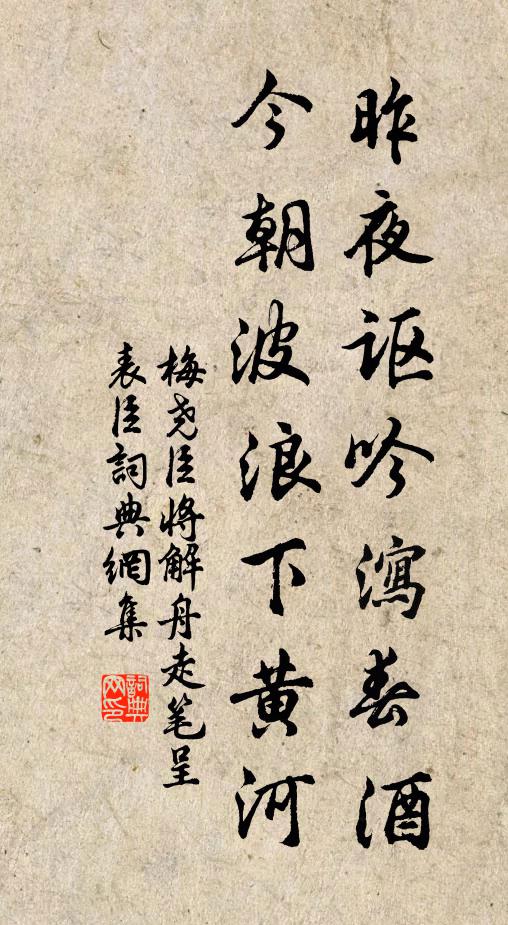 昨夜讴吟瀉春酒
今朝波浪下黄河
梅尧臣将解舟走笔呈
表臣詞典網集
詞典
网印